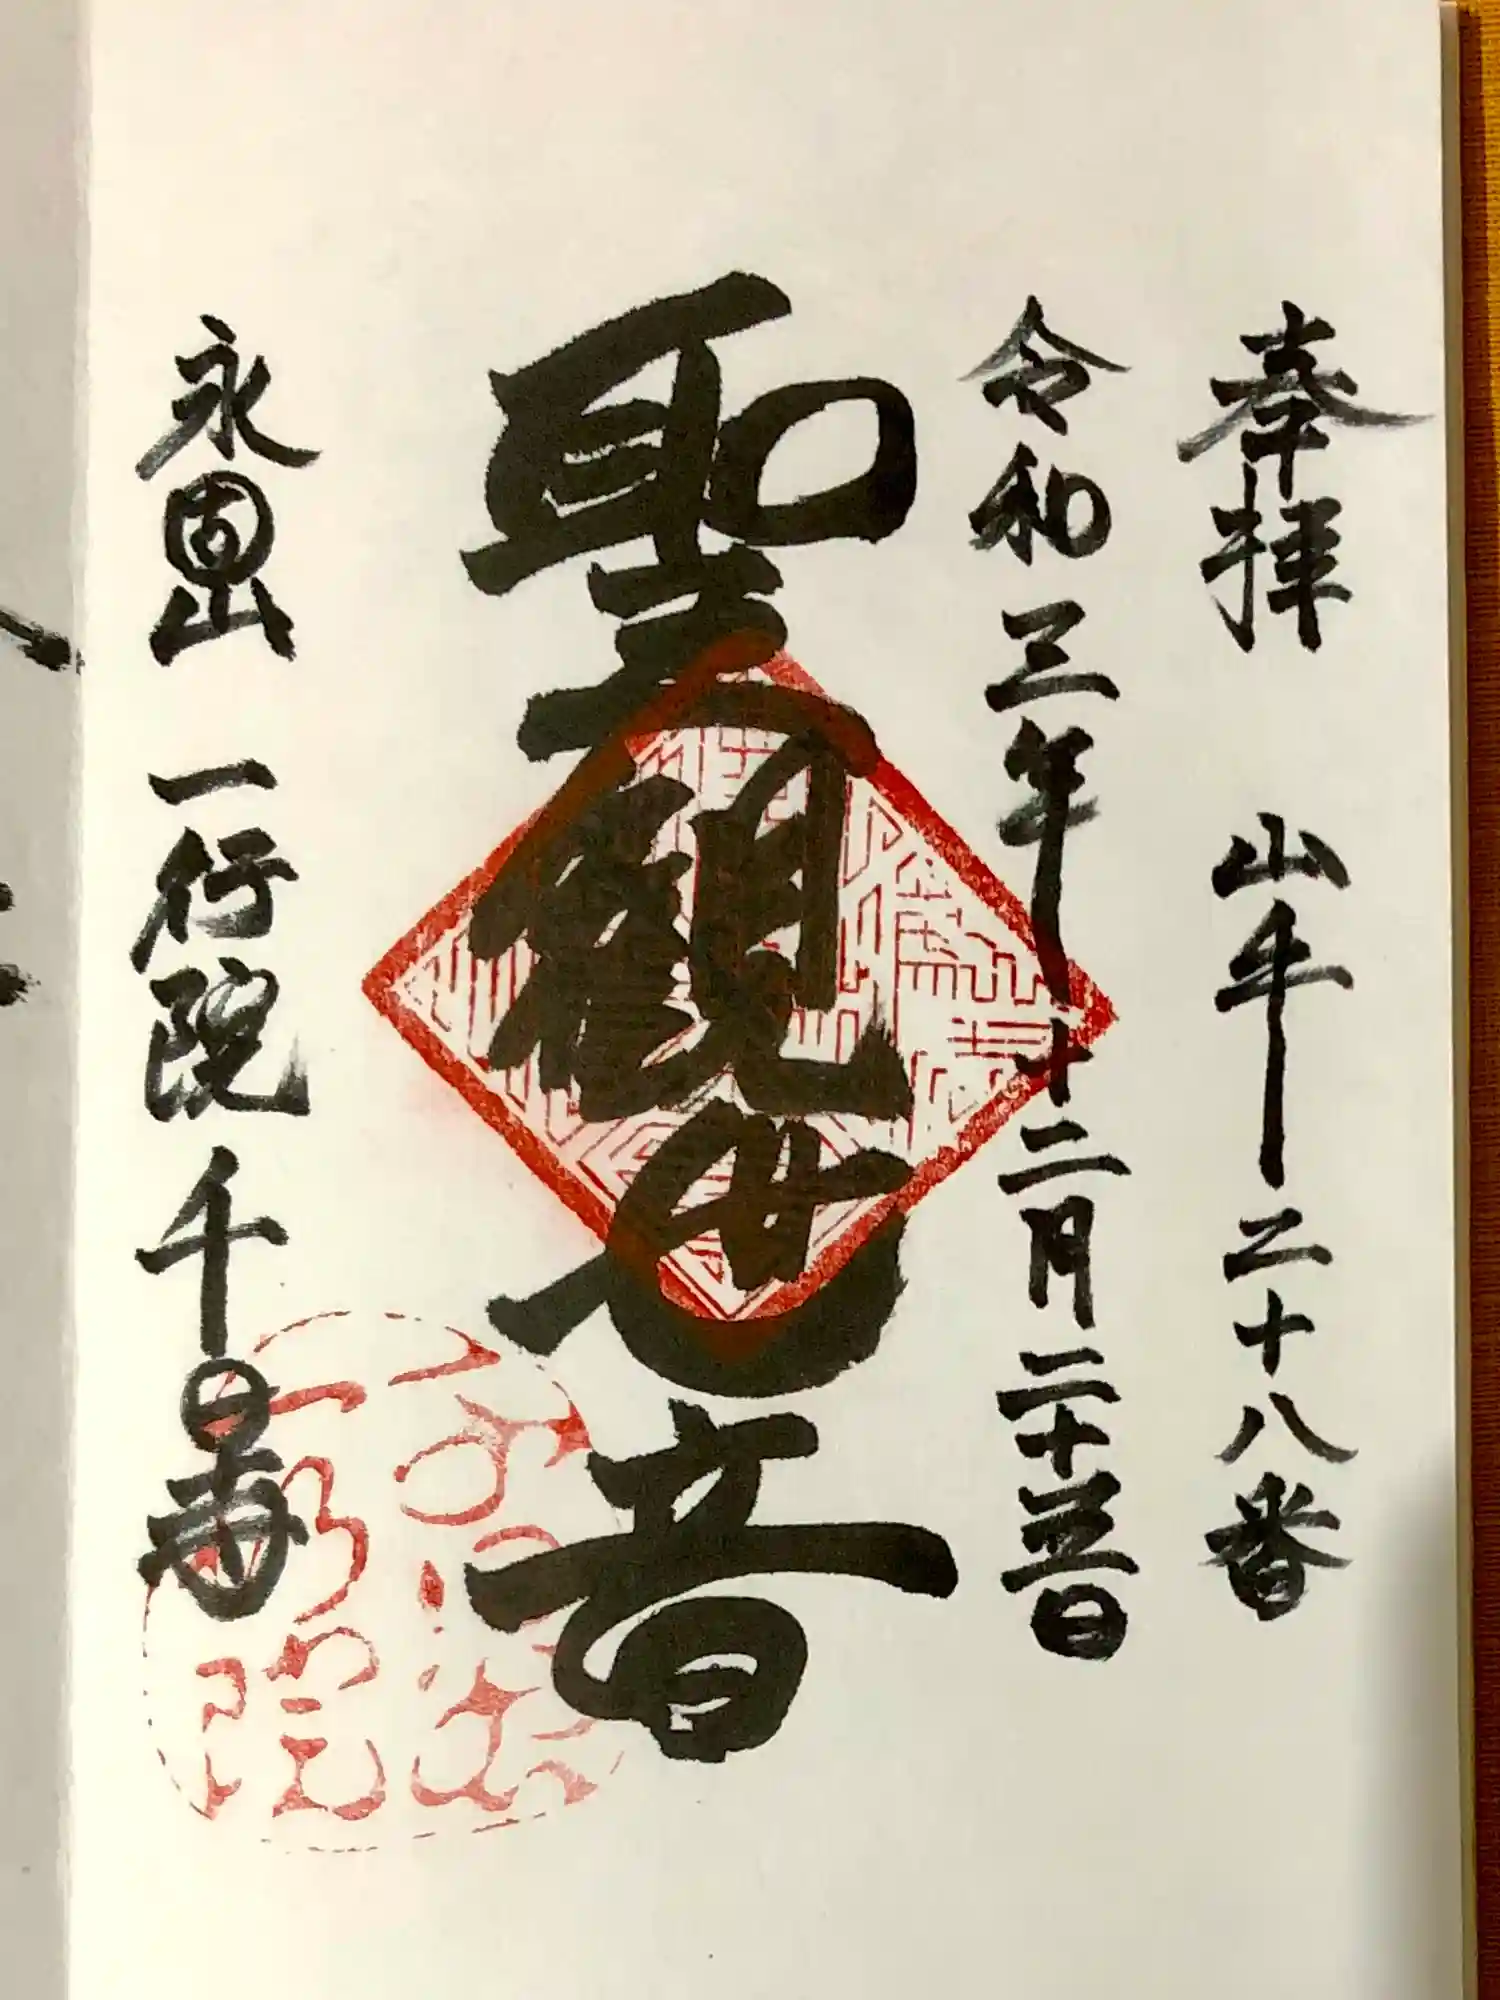 奉拝 山手二十八番
令和三年十二月二十三日
聖観世音
永固山 一行院 千日寺